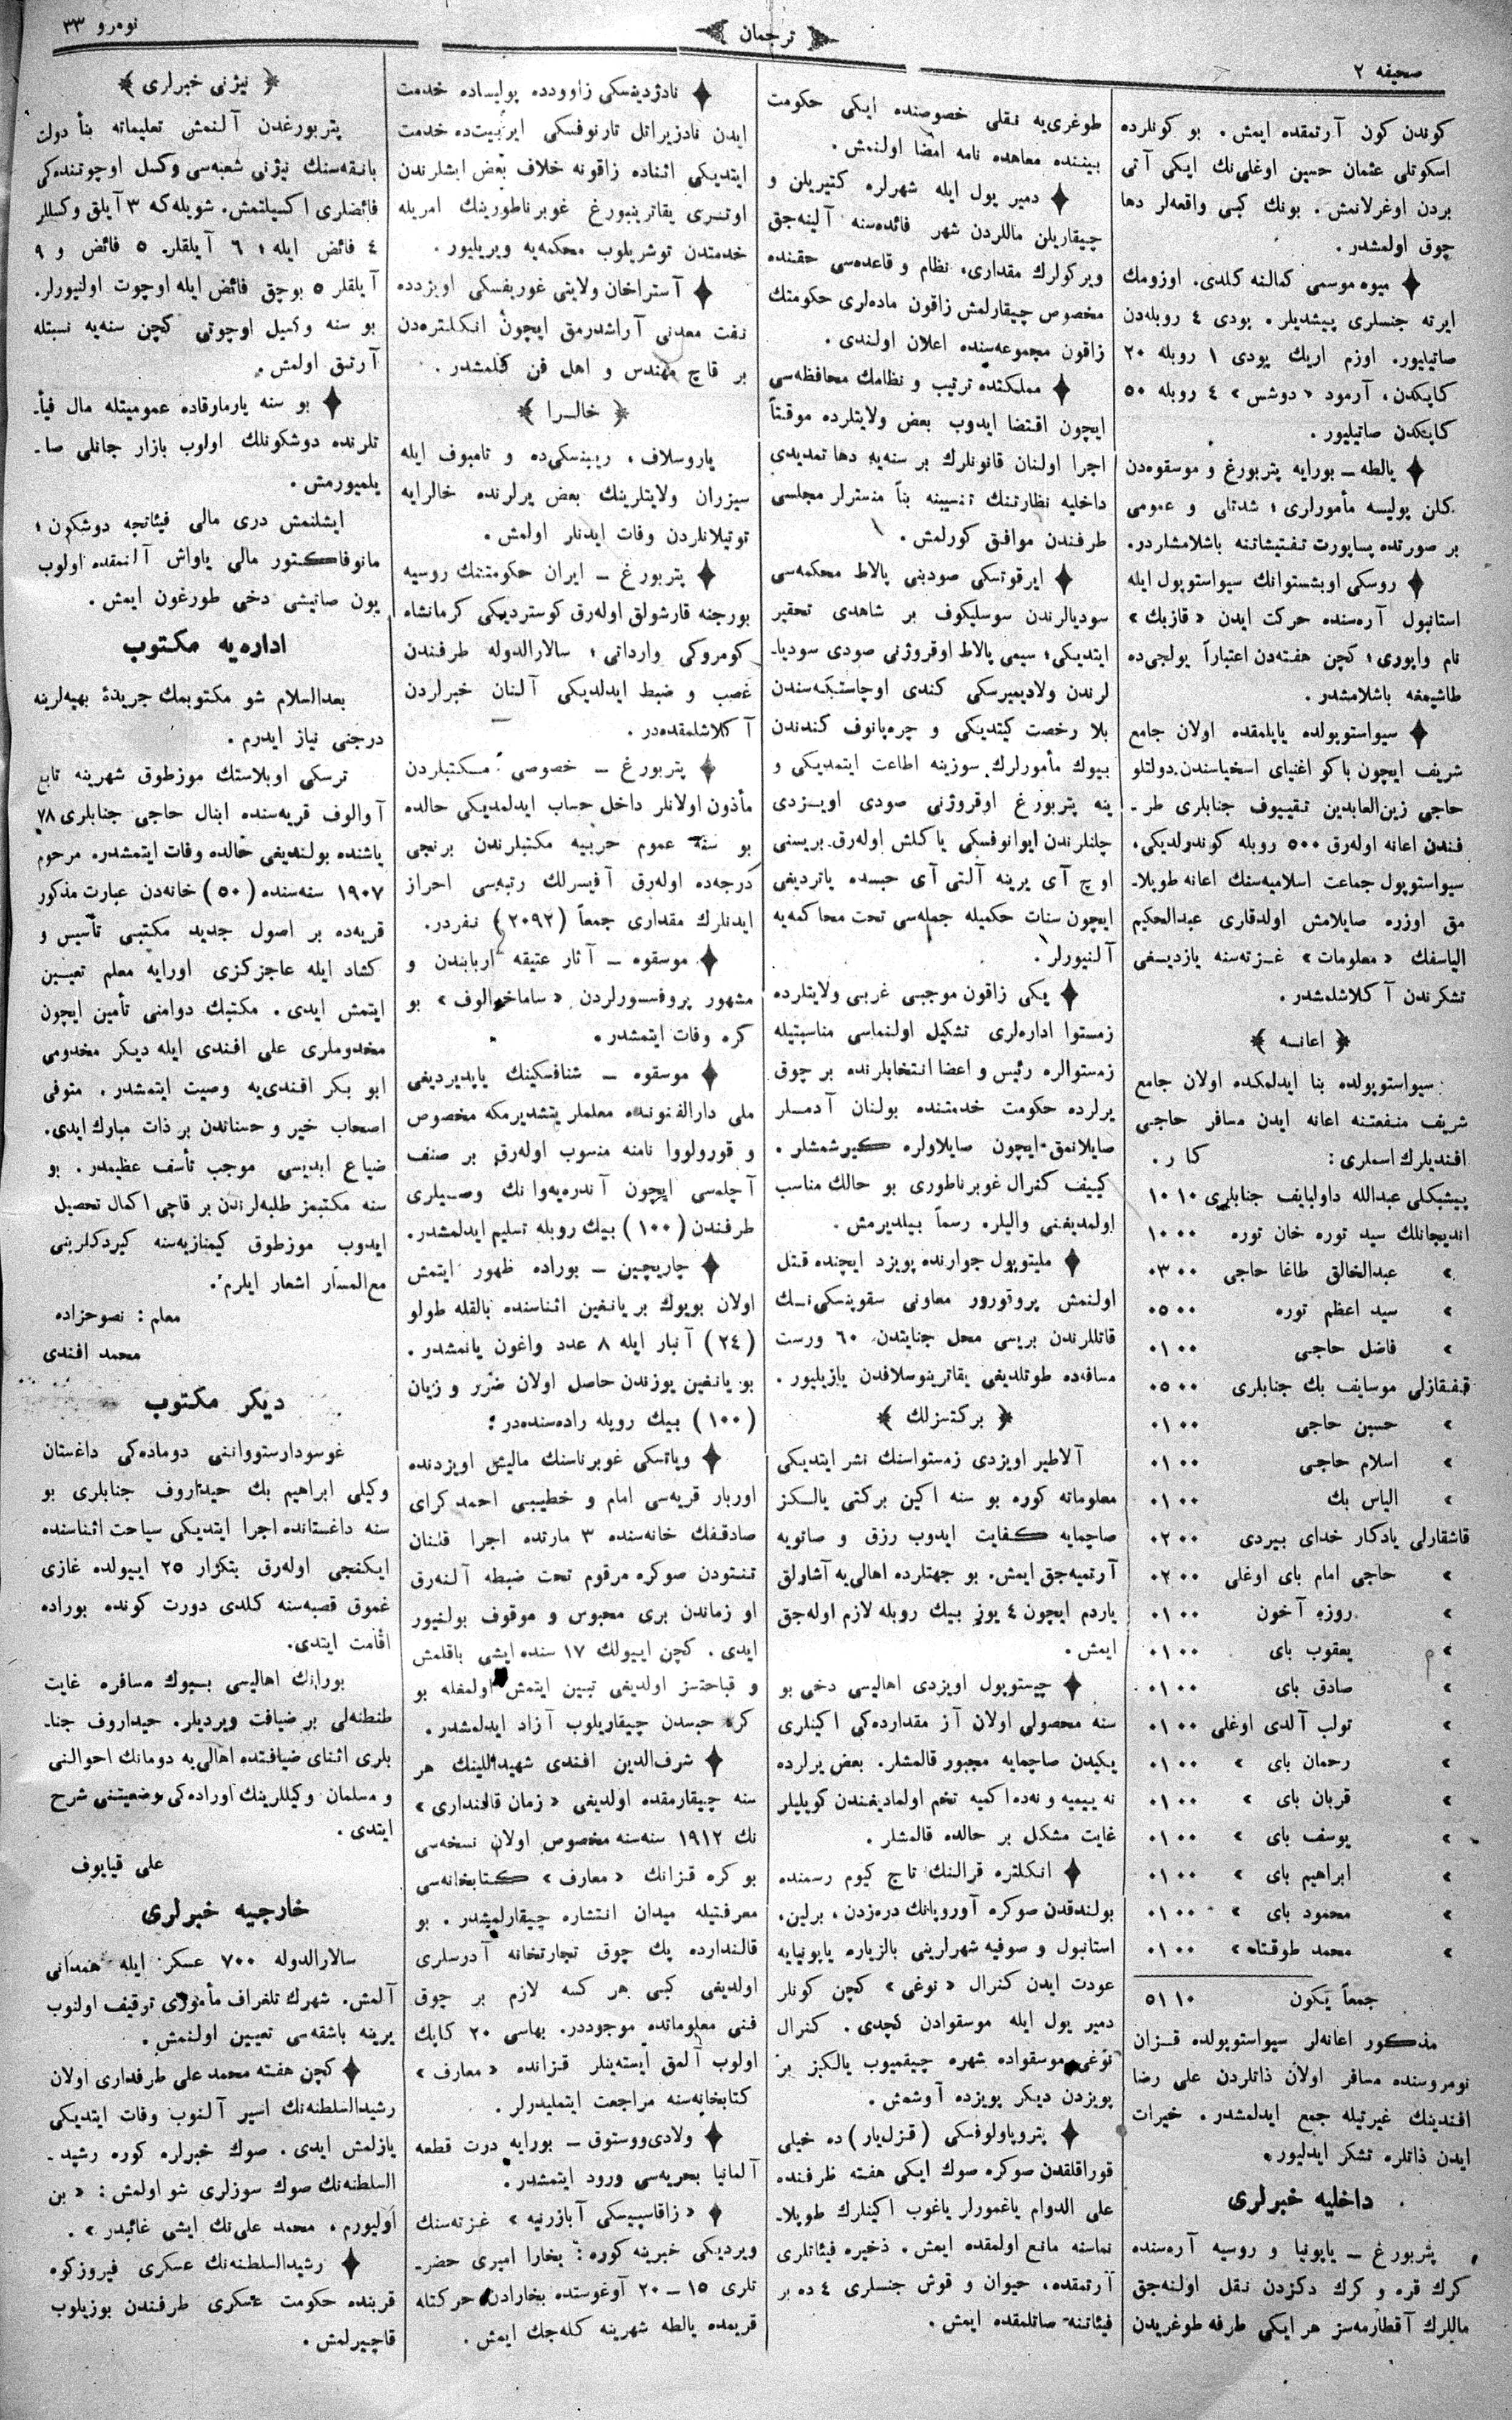 صحیفه ٢
ترجمان
نومرو ٣٣
كوندن كون آرتمقده ايمش. بو كونلرده
اسكوتلى عثمان حسين اوغلى‌نك ايكى آتى
بردن اوغرلانمش. بونك كبى واقعه‌لر دها
چوق اولمشدر.
ميوه موسمى كمالنه كلدى. اوزومك
ايرته جنسلرى پيشديلر. پودى ٤ روبله‌دن
صاتيليور. اوزم اريك پودى ١ روبله ٢٠
كاپكدن، آرمود «دوشس» ٤ روبله ٥٠
كاپكدن صاتيليور.
يالطه ـ بورايه پتربورغ و موسقوه‌دن
كلن پوليسه مأمورلرى؛ شدتلى و عمومى
بر صورتده پساپورت تفتيشاتنه باشلامشلردر.
روسكى اوبشستوانك سيواستوپول ايله
استانبول آره‌سنده حركت ايدن «قازبك»
نام واپورى؛ كچن هفته‌دن اعتباراً يولجى‌ده
طاشيمغه باشلامشدر.
سيواستوپولده ياپلمقده اولان جامع
شريف ايچون باكو اغنياى اسخياسندن دولتلو
حاجى زين‌العابدين تقييوف جنابلرى طر ـ
فندن اعانه اوله‌رق ٥٠٠ روبله كوندولديكى،
سيواستوپول جماعت اسلاميه‌سنك اعانه طوپلا‌ـ
مق اوزره صايلامش اولدقارى عبدالحكيم
الياسفك «معلومات» غزته‌سنه يازديغى
تشكرندن آكلاشلمشدر.
اعانه
سيواستوپولده بنا ايدلمكده اولان جامع
شريف منفعتنه اعانه ايدن مسافر حاجى
افنديلرك اسملرى: كا ر.
پيشپكلى عبدالله داوليايف جنابلرى ١٠ ١٠
انديجانلك سيد توره خان توره ٠٠ ١٠
» عبدالخالق طاغا حاجى ٠٠ ٠٣
» سيد اعظم توره ٠٠ ٠٥
» فاضل حاجى ٠٠ ٠١
قفقازلى موسايف بك جنابلرى ٠٠ ٠٥
» حسين حاجى ٠٠ ٠١
» اسلام حاجى ٠٠ ٠١
» الياس بك ٠٠ ٠١
قاشقارلى يادكار خداى بيردى ٠٠ ٠٢
» حاجى امام باى اوغلى ٠٠ ٠٢
» روزه آخون ٠٠ ٠١
» يعقوب باى ٠٠ ٠١
» صادق باى ٠٠ ٠١
» تولب آلدى اوغلى ٠٠ ٠١
» رحمان باى » ٠٠ ٠١
» قربان باى » ٠٠ ٠١
» يوسف باى » ٠٠ ٠١
» ابراهيم باى » ٠٠ ٠١
» محمود باى » ٠٠ ٠١
» محمد طوقتاه » ٠٠ ٠١
جمعاً يكون ١٠ ٥١
مذكور اعانه‌لر سيواستوپولده قزان
نومروسنده مسافر اولان ذاتلردن على رضا
افندينك غيرتيله جمع ايدلمشدر. خيرات
ايدن ذاتلره تشكر ايدليور.
داخليه خبرلرى
پتربورغ ـ ياپونيا و روسيه آره‌سنده
كرك قره و كرك دكزدن نقل اولنه‌جق
ماللرك آقطارمه‌سز هر ايكى طرفه طوغريدن
طوغرى‌يه نقلى خصوصنده ايكى حكومت
بيننده معاهده نامه امضا اولنمش.
دمير يول ايله شهرلره كتيريلن و
چيقاريلن ماللردن شهر فائده‌سنه آلينه‌جق
ويركولرك مقدارى، نظام و قاعده‌سى حقنده
مخصوص چيقارلمش زاقون ماده‌لرى حكومتك
زاقون مجموعه‌سنده اعلان اولندى.
مملكتده ترتيب و نظامك محافظه‌سى
ايچون اقتضا ايدوب بعض ولايتلرده موقتاً
اجرا اولنان قانونلرك بر سنه‌يه دها تمديدى
داخليه نظارتنك تنسيبنه بناً منسترلر مجلسى
طرفندن موافق كورلمش.
ايرقوتسكى صودبنى پالاط محكمه‌سى
سوديالرندن سوسليكوف بر شاهدى تحقير
ايتديكى؛ سيمى پالاط اوقروژنى صودى سوديا‌ـ
لرندن ولاديميرسكى كندى اوچاستكه‌سندن
بلا رخصت كيتديكى و چره‌پانوف كندندن
بيوك مأمورلرك سوزينه اطاعت ايتمديكى و
ينه پتربورغ اوقروژنى صودى اويزدى
چلنلرندن ايوانوفسكى ياكلش اوله‌رق بريسنى
اوچ آى يرينه آلتى آى حبسده ياترديغى
ايچون سنات حكميله جمله‌سى تحت محاكمه‌يه
آلنيورلر.
يكى زاقون موجبى غربى ولايتلرده
زمستوا اداره‌لرى تشكيل اولنماسى مناسبتيله
زمستوالره رئيس و اعضا انتخابلرنده بر چوق
يرلرده حكومت خدمتنده بولنان آدملر
صايلانمق ايچون صايلاولره كيرشمشلر.
كييف كنرال غوبرناطورى بو حالك مناسب
اولمديغنى واليلره رسماً بيلديرمش.
مليتوپول جوارنده پويزد ايچنده قتل
اولنمش پروقورور معاونى سقوينسكى‌نك
قاتللرندن بريسى محل جنايتدن ٦٠ ورست
مسافه‌ده طوتلديغى يقاترينوسلافدن يازيليور.
بركتسزلك
آلاطير اويزدى زمستواسنك نشر ايتديكى
معلوماته كوره بو سنه اكين بركتى يالكز
صاچمايه كفايت ايدوب رزق و صاتويه
آرتميه‌جق ايمش. بو جهتلرده اهالى‌يه آشارلق
ياردم ايچون ٤ يوز بيك روبله لازم اوله‌جق
ايمش.
چيستوپول اويزدى اهاليسى دخى بو
سنه محصولى اولان آز مقداردەكى اكينلرى
يكيدن صاچمايه مجبور قالمشلر. بعض يرلرده
نه ييميه و نه‌ده اكميه تخم اولماديغندن كويليلر
غايت مشكل بر حالده قالمشلر.
انكلتره قرالنك تاج كيوم رسمنده
بولندقدن صوكره آوروپانك درەزدن، برلين،
استانبول و صوفيه شهرلرينى بالزياره ياپونيايه
عودت ايدن كنرال «نوغى» كچن كونلر
دمير يول ايله موسقوادن كچدى. كنرال
نوغى موسقواده شهره چيقميوب يالكز بر
پويزدن ديكر پويزده آوشمش.
پتروپاولوفسكى (قزل‌يار) ده خيلى
قوراقلقدن صوكره صوك ايكى هفته ظرفنده
على الدوام ياغمورلر ياغوب اكينلرك طوپلا‌ـ
نماسنه مانع اولمقده ايمش. ذخيره فيئاتلرى
آرتمقده، حيوان و قوش جنسلرى ٤ ده بر
فيئاتنه صاتلمقده ايمش.
نادژدينسكى زاوودده پوليساده خدمت
ايدن نادزيراتل تارنوفسكى ايربيت‌ده خدمت
ايتديكى اثناده زاقونه خلاف بعض ايشلرندن
اوترى يقاترينبورغ غوبرناطورينك امريله
خدمتدن توشريلوب محكمه‌يه ويريليور.
آستراخان ولايتى غوريفسكى اويزدده
نفت معدنى آراشدرمق ايچون انكلتره‌دن
بر قاچ مهندس و اهل فن كلمشدر.
خالرا
ياروسلاف، ريبنسكى‌ده و تامبوف ايله
سيزران ولايتلرينك بعض يرلرنده خالرايه
توتيلانلردن وفات ايدنلر اولمش.
پتربورغ ـ ايران حكومتنك روسيه
بورجنه قارشولق اوله‌رق كوسترديكى كرمانشاه
كومروكى وارداتى؛ سالارالدوله طرفندن
غصب و ضبط ايدلديكى آلنان خبرلردن
آكلاشلمقده‌در.
پتربورغ ـ خصوصى مكتبلردن
مأذون اولانلر داخل حساب ايدلمديكى حالده
بو سنه عموم حربيه مكتبلرندن برنجى
درجه‌ده اوله‌رق آفيسرلك رتبه‌سى احراز
ايدنلرك مقدارى جمعاً (٢٠٩٢) نفردر.
موسقوه ـ آثار عتيقه اربابندن و
مشهور پروفسورلردن «ساماخوالوف» بو
كره وفات ايتمشدر.
موسقوه ـ شنافسكينك ياپديرديغى
ملى دارالفنونده معلملر يتشديرمكه مخصوص
و قورولووا نامنه منسوب اوله‌رق بر صنف
آچلمسى ايچون آندره‌يه‌وانك وصيلرى
طرفندن (١٠٠) بيك روبله تسليم ايدلمشدر.
چاريچين ـ بوراده ظهور ايتمش
اولان بويوك بر يانغين اثناسنده بالقله طولو
(٢٤) آنبار ايله ٨ عدد واغون يانمشدر.
بو يانغين يوزندن حاصل اولان ضرر و زيان
(١٠٠) بيك روبله راده‌سنده‌در.
وياتسكى غوبرناسنك ماليش اويزدنده
اوربار قريه‌سى امام و خطيبى احمدكراى
صادقفك خانه‌سنده ٣ مارتده اجرا قلنان
تنتودن صوكره مرقوم تحت ضبطه آلنه‌رق
او زماندن برى محبوس و موقوف بولنيور
ايدى. كچن اييولك ١٧ سنده ايشى باقلمش
و قباحتسز اولديغى تبين ايتمش اولمغله بو
كره حبسدن چيقاريلوب آزاد ايدلمشدر.
شرف‌الدين افندى شهيدالّلينك هر
سنه چيقارمقده اولديغى «زمان قالنداری»
نك ١٩١٢ سنه‌سنه مخصوص اولان نسخه‌سى
بو كره قزانك «معارف» كتابخانه‌سى
معرفتيله ميدان انتشاره چيقارلمشدر. بو
قالندارده پك چوق تجارتخانه آدرسلرى
اولديغى كبى هر كسه لازم بر چوق
فنى معلوماتده موجوددر. بهاسى ٢٠ كاپك
اولوب آلمق ايسته‌ينلر قزانده «معارف»
كتابخانه‌سنه مراجعت ايتمليدرلر.
ولادى‌ووستوق ـ بورايه درت قطعه
آلمانيا بحريه‌سى ورود ايتمشدر.
«زاقاسپيسكى آبازرنيه» غزته‌سنك
ويرديكى خبرينه كوره: بخارا اميرى حضر‌ـ
تلرى ١٥ ـ ٢٠ آوغوستده بخارادن حركتله
قريمده يالطه شهرينه كله‌جك ايمش.
نيژنى خبرلرى
پتربورغدن آلنمش تعليماته بناً دولت
بانقه‌سنك نيژنى شعبه‌سى وكسل اوچوتنده‌كى
فائضلرى اكسيلتمش. شويله‌كه ٣ آيلق وكسللر
٤ فائض ايله، ٦ آيلقلر ٥ فائض و ٩
آيلقلر ٥ بوچق فائض ايله اوچوت اولنيورلر.
بو سنه وكسيل اوچوتى كچن سنه‌يه نسبتله
آرتق اولمش.
بو سنه يارماروقاده عموميتله مال فيأ‌ـ
تلرنده دوشكونلك اولوب بازار جانلى صا‌ـ
يلميورمش.
ايشلنمش درى مالى فيئاتجه دوشكون؛
مانوفاكتور مالى ياواش آلنمقده اولوب
يون صاتيشى دخى طورغون ايمش.
اداره‌يه مكتوب
بعدالسلام شو مكتوبمك جريدهٔ بهيه‌لرينه
درجنى نياز ايدرم.
ترسكى اوبلاستك موزطوق شهرينه تابع
آوالوف قريه‌سنده اينال حاجى جنابلرى ٧٨
ياشنده بولنديغى حالده وفات ايتمشدر. مرحوم
١٩٠٧ سنه‌سنده (٥٠) خانه‌دن عبارت مذكور
قريه‌ده بر اصول جديد مكتبى تأسيس و
كشاد ايله عاجزكزى اورايه معلم تعيين
ايتمش ايدى. مكتبك دوامنى تأمين ايچون
مخدوملرى على افندى ايله ديكر مخدومى
ابو بكر افندى‌يه وصيت ايتمشدر. متوفى
اصحاب خير و حسناندن بر ذات مبارك ايدى.
ضياع ابديسى موجب تأسف عظيمدر. بو
سنه مكتبمز طلبه‌لرندن بر قاچى اكمال تحصيل
ايدوب موزطوق كيمنازيه‌سنه كيردكلرينى
مع‌المسار اشعار ايلرم.
معلم: نصوحزاده
محمد افندى
ديكر مكتوب
غوسودارستووانى دوماده‌كى داغستان
وكيلى ابراهيم بك حيدآروف جنابلرى بو
سنه داغستانده اجرا ايتديكى سياحت اثناسنده
ايكنجى اوله‌رق بتكرار ٢٥ اييولده غازى
غموق قصبه‌سنه كلدى دورت كونده بوراده
اقامت ايتدى.
بورانك اهاليسى بيوك مسافره غايت
طنطنه‌لى بر ضيافت ويرديلر. حيداروف جنا‌ـ
بلرى اثناى ضيافتده اهالى‌يه دومانك احوالنى
و مسلمان وكيللرينك اوراده‌كى وضعيتنى شرح
ايتدى.
على قيايوف
خارجيه خبرلرى
سالارالدوله ٧٠٠ عسكر ايله همدانى
آلمش. شهرك تلغراف مأمورى توقيف اولنوب
يرينه باشقه‌سى تعيين اولنمش.
كچن هفته محمد على طرفدارى اولان
رشيدالسلطنه‌نك اسير آلنوب وفات ايتديكى
يازلمش ايدى. صوك خبرلره كوره رشيد‌ـ
السلطنه‌نك صوك سوزلرى شو اولمش: «بن
اوليورم، محمد على‌نك ايشى غائبدر».
رشيدالسلطنه‌نك عسكرى فيروزكوه
قربنده حكومت عسكرى طرفندن بوزيلوب
قاچيرلمش.